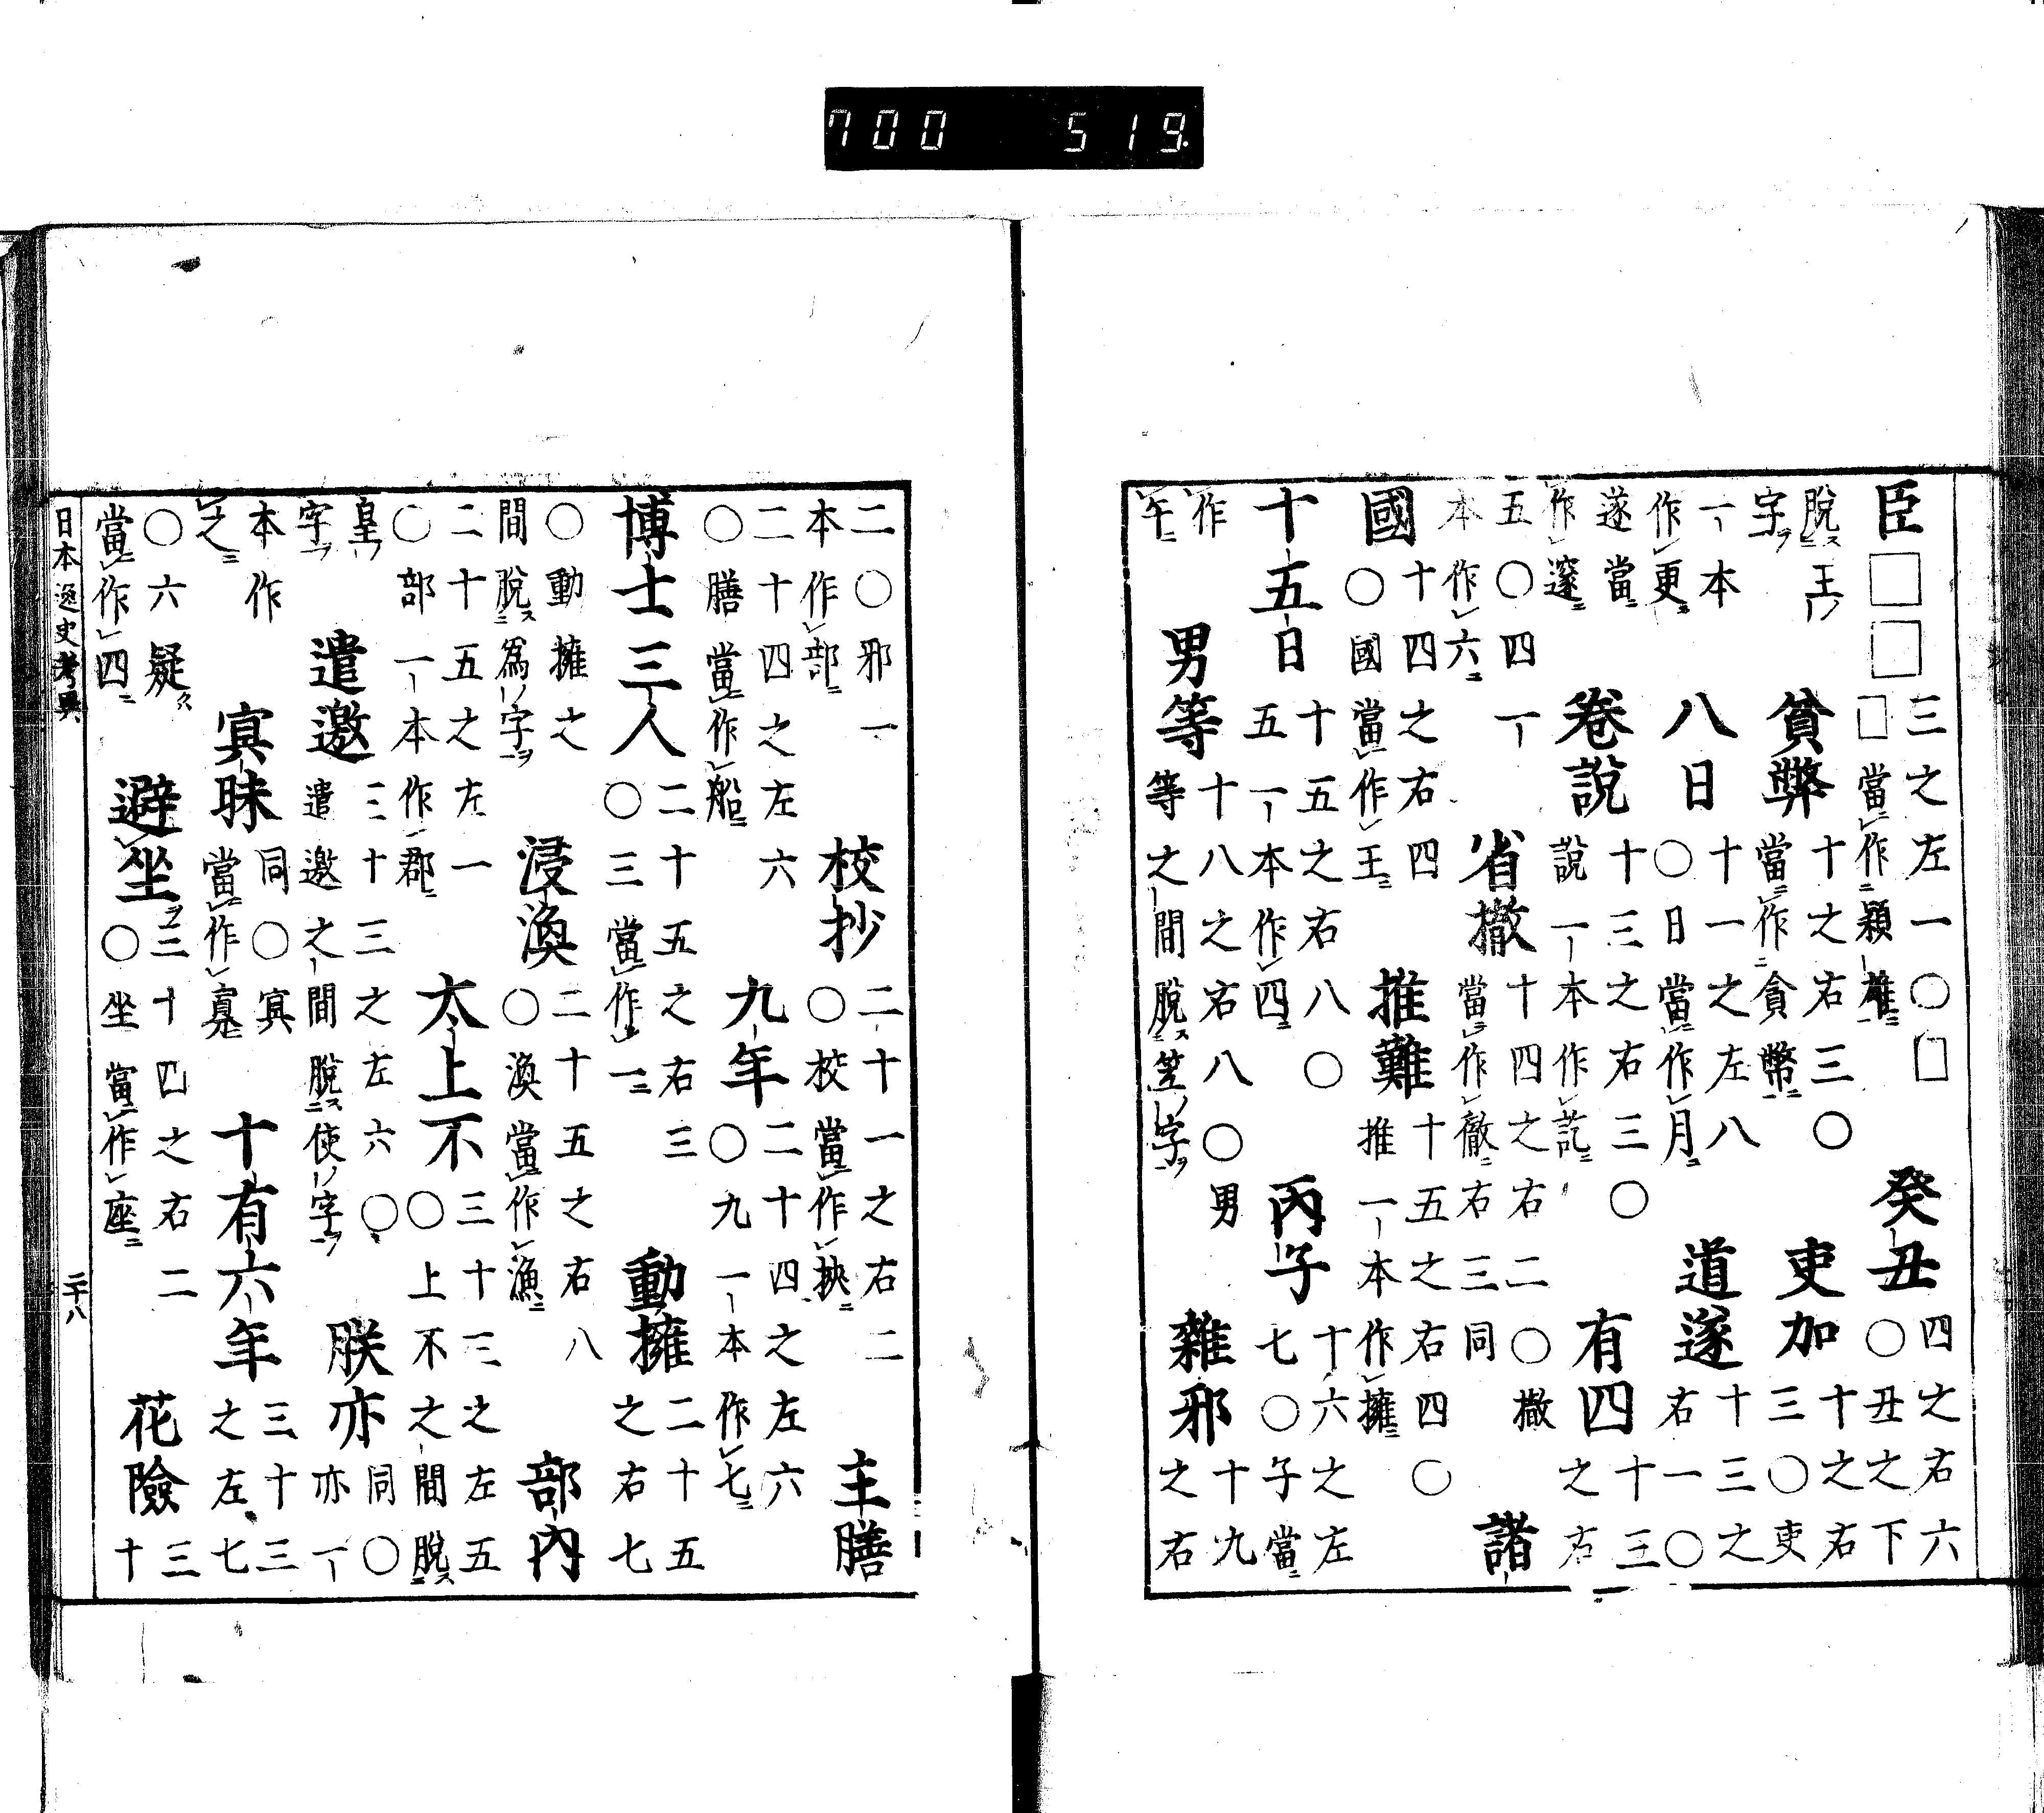 臣□□三之左一○□□當作穎雄癸丑四之右六○丑之下
脫王字貧弊十之右三○當作貪幣吏加十之右三○吏
一本作更八日十一之左八○日當作月道遂十三之右一○
遂當作邃卷說十三之右三○說一本作有四十三之右
五○四一本作六省撤十四之右二○撤當作徹右三同諸
國十四之右四○國當作王推難十五之右四○推一本作擁
十五日十五之右八○五一本作四丙子十六之左七○子當
作午男等十八之右八○男等之間脫笠字雜邪十九之右
二○邪一本作部校抄二十一之右二○校當作挾主膳
二十四之左六○膳當作船九年二十四之左六○九一本作七
博士三人二十五之右三○三當作一動擁二十五之右七
○動擁之間脫為字浸渙二十五之右八○渙當作漁部內
二十五之左一○部一本作郡太上不三十三之左五○上不之間脫
皇字遣邀三十三之左六○遣邀之間脫使字朕亦同○亦一
本作之寘昧同○寘當作寡十有六年三十三之左七
○六疑當作四避坐三十四之右二○坐當作座花險三十
日本逸史考異 二十八
700 519